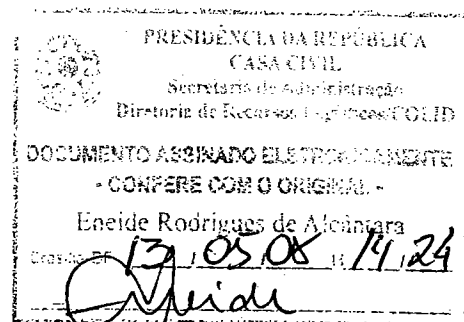 PRESIDÊNCIA DA REPÚBLICA
CASA CIVIL
Secretaria de Administração
Diretoria de Recursos Logísticos/COLID
DOCUMENTO ASSINADO ELETRONICAMENTE
- CONFERE COM O ORIGINAL -
Eneide Rodrigues de Alcântara
Brasília-DF 13/05/08 H 14:24
Eneide